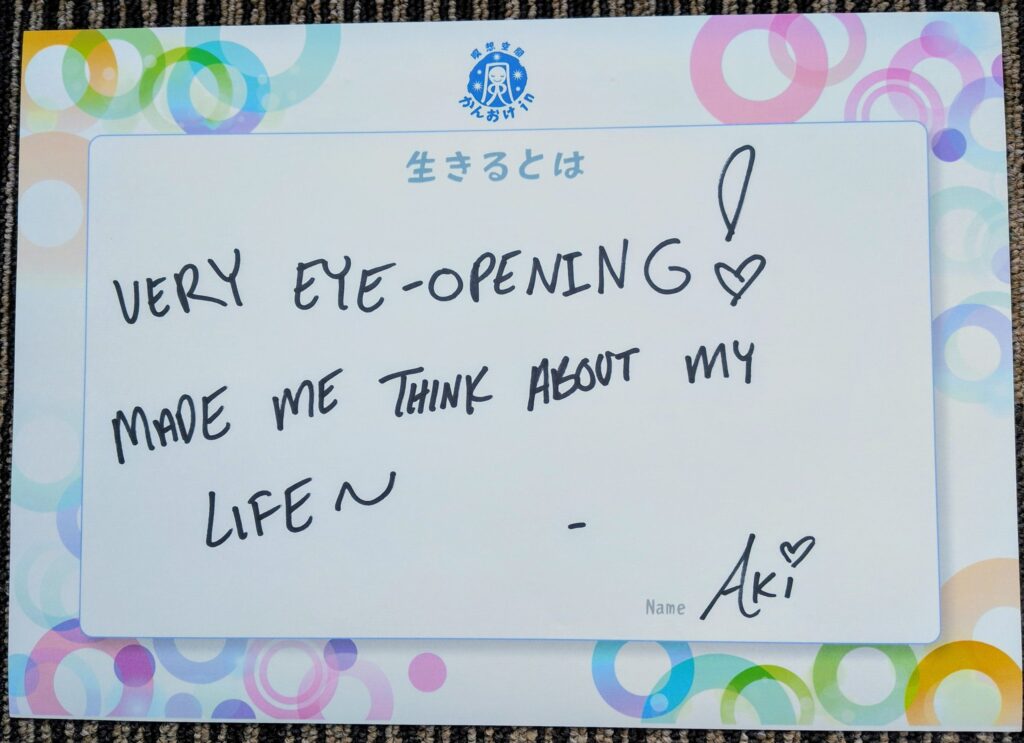 瞑想空間
かんおけin
生きるとは
VERY EYE-OPENING!
MADE ME THINK ABOUT MY
LIFE~
-
Name Aki